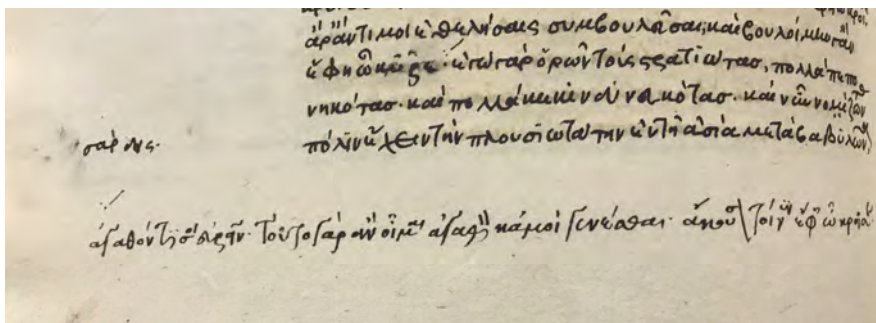 ἆρ' ἄν τί μοι ἐθελήσαις συμβουλεῦσαι; καὶ βουλοίμην γ' ἄν
ἔφη ὦ κῦρε· ἐγὼ γὰρ ὁρῶν τοὺς στρατιώτας, πολλὰ πεπο
νηκότας· καὶ πολλὰ κεκινδυνευκότας· καὶ νῦν νομίζων
σάρδεις·
πόλιν ἔχειν τὴν πλουσιωτάτην ἐν τῇ ἀσίᾳ μετὰ βαβυλῶνα
ἀγαθόν τί σοι εὑρεῖν· τοῦτο γὰρ ἂν οἶμαι ἀγαθὸν κἀμοὶ γενέσθαι· ἄκουσον τοίνυν ἔφη ὦ κροῖσε·